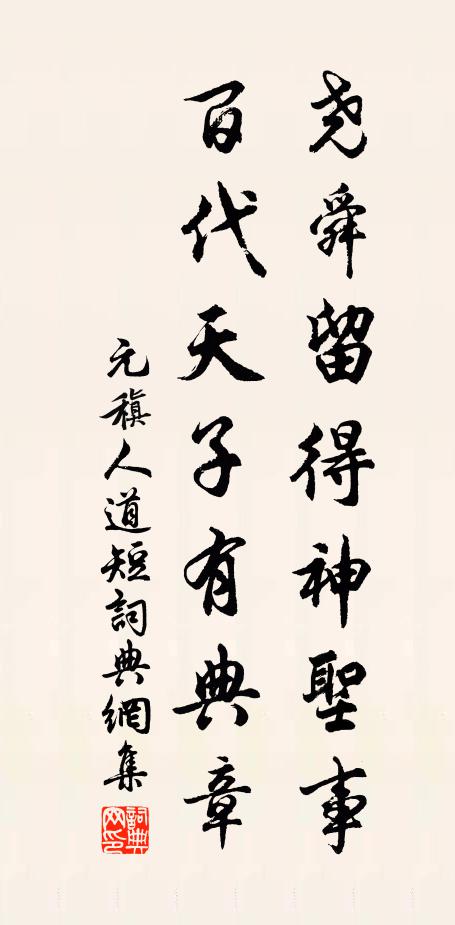 尧舜留得神聖事
百代天子有典章
元稹人道短詞典網集
詞典网印